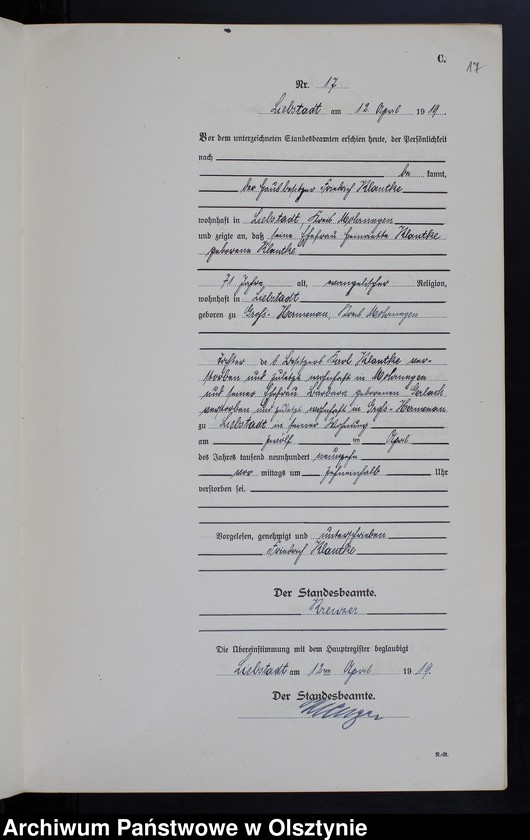 C.
17
Nr. 17
Liebstadt am 12. April 1919.
Vor dem unterzeichneten Standesbeamten erschien heute, der Persönlichkeit
nach
be kannt,
der Hausbesitzer Friedrich Klautke
wohnhaft in Liebstadt, Kreis Mohrungen
und zeigte an, daß seine Ehefrau Henriette Klautke
geborene Klautke
71 Jahre alt, evangelischer Religion,
wohnhaft in Liebstadt
geboren zu Groß-Hermenau, Kreis Mohrungen
Tochter des Besitzers Karl Klautke ver-
storben und zuletzt wohnhaft in Mohrungen
und seiner Ehefrau Barbara geborenen Gerlach
verstorben und zuletzt wohnhaft in Groß-Hermenau
zu Liebstadt in seiner Wohnung
am zwölf ten April
des Jahres tausend neunhundert neunzehn
vor mittags um zehneinhalb Uhr
verstorben sei.
Vorgelesen, genehmigt und unterschrieben
Friedrich Klautke
Der Standesbeamte.
Die Übereinstimmung mit dem Hauptregister beglaubigt
Liebstadt am 12ten April 1919.
Der Standesbeamte.
R.-R.
Archiwum Państwowe w Olsztynie